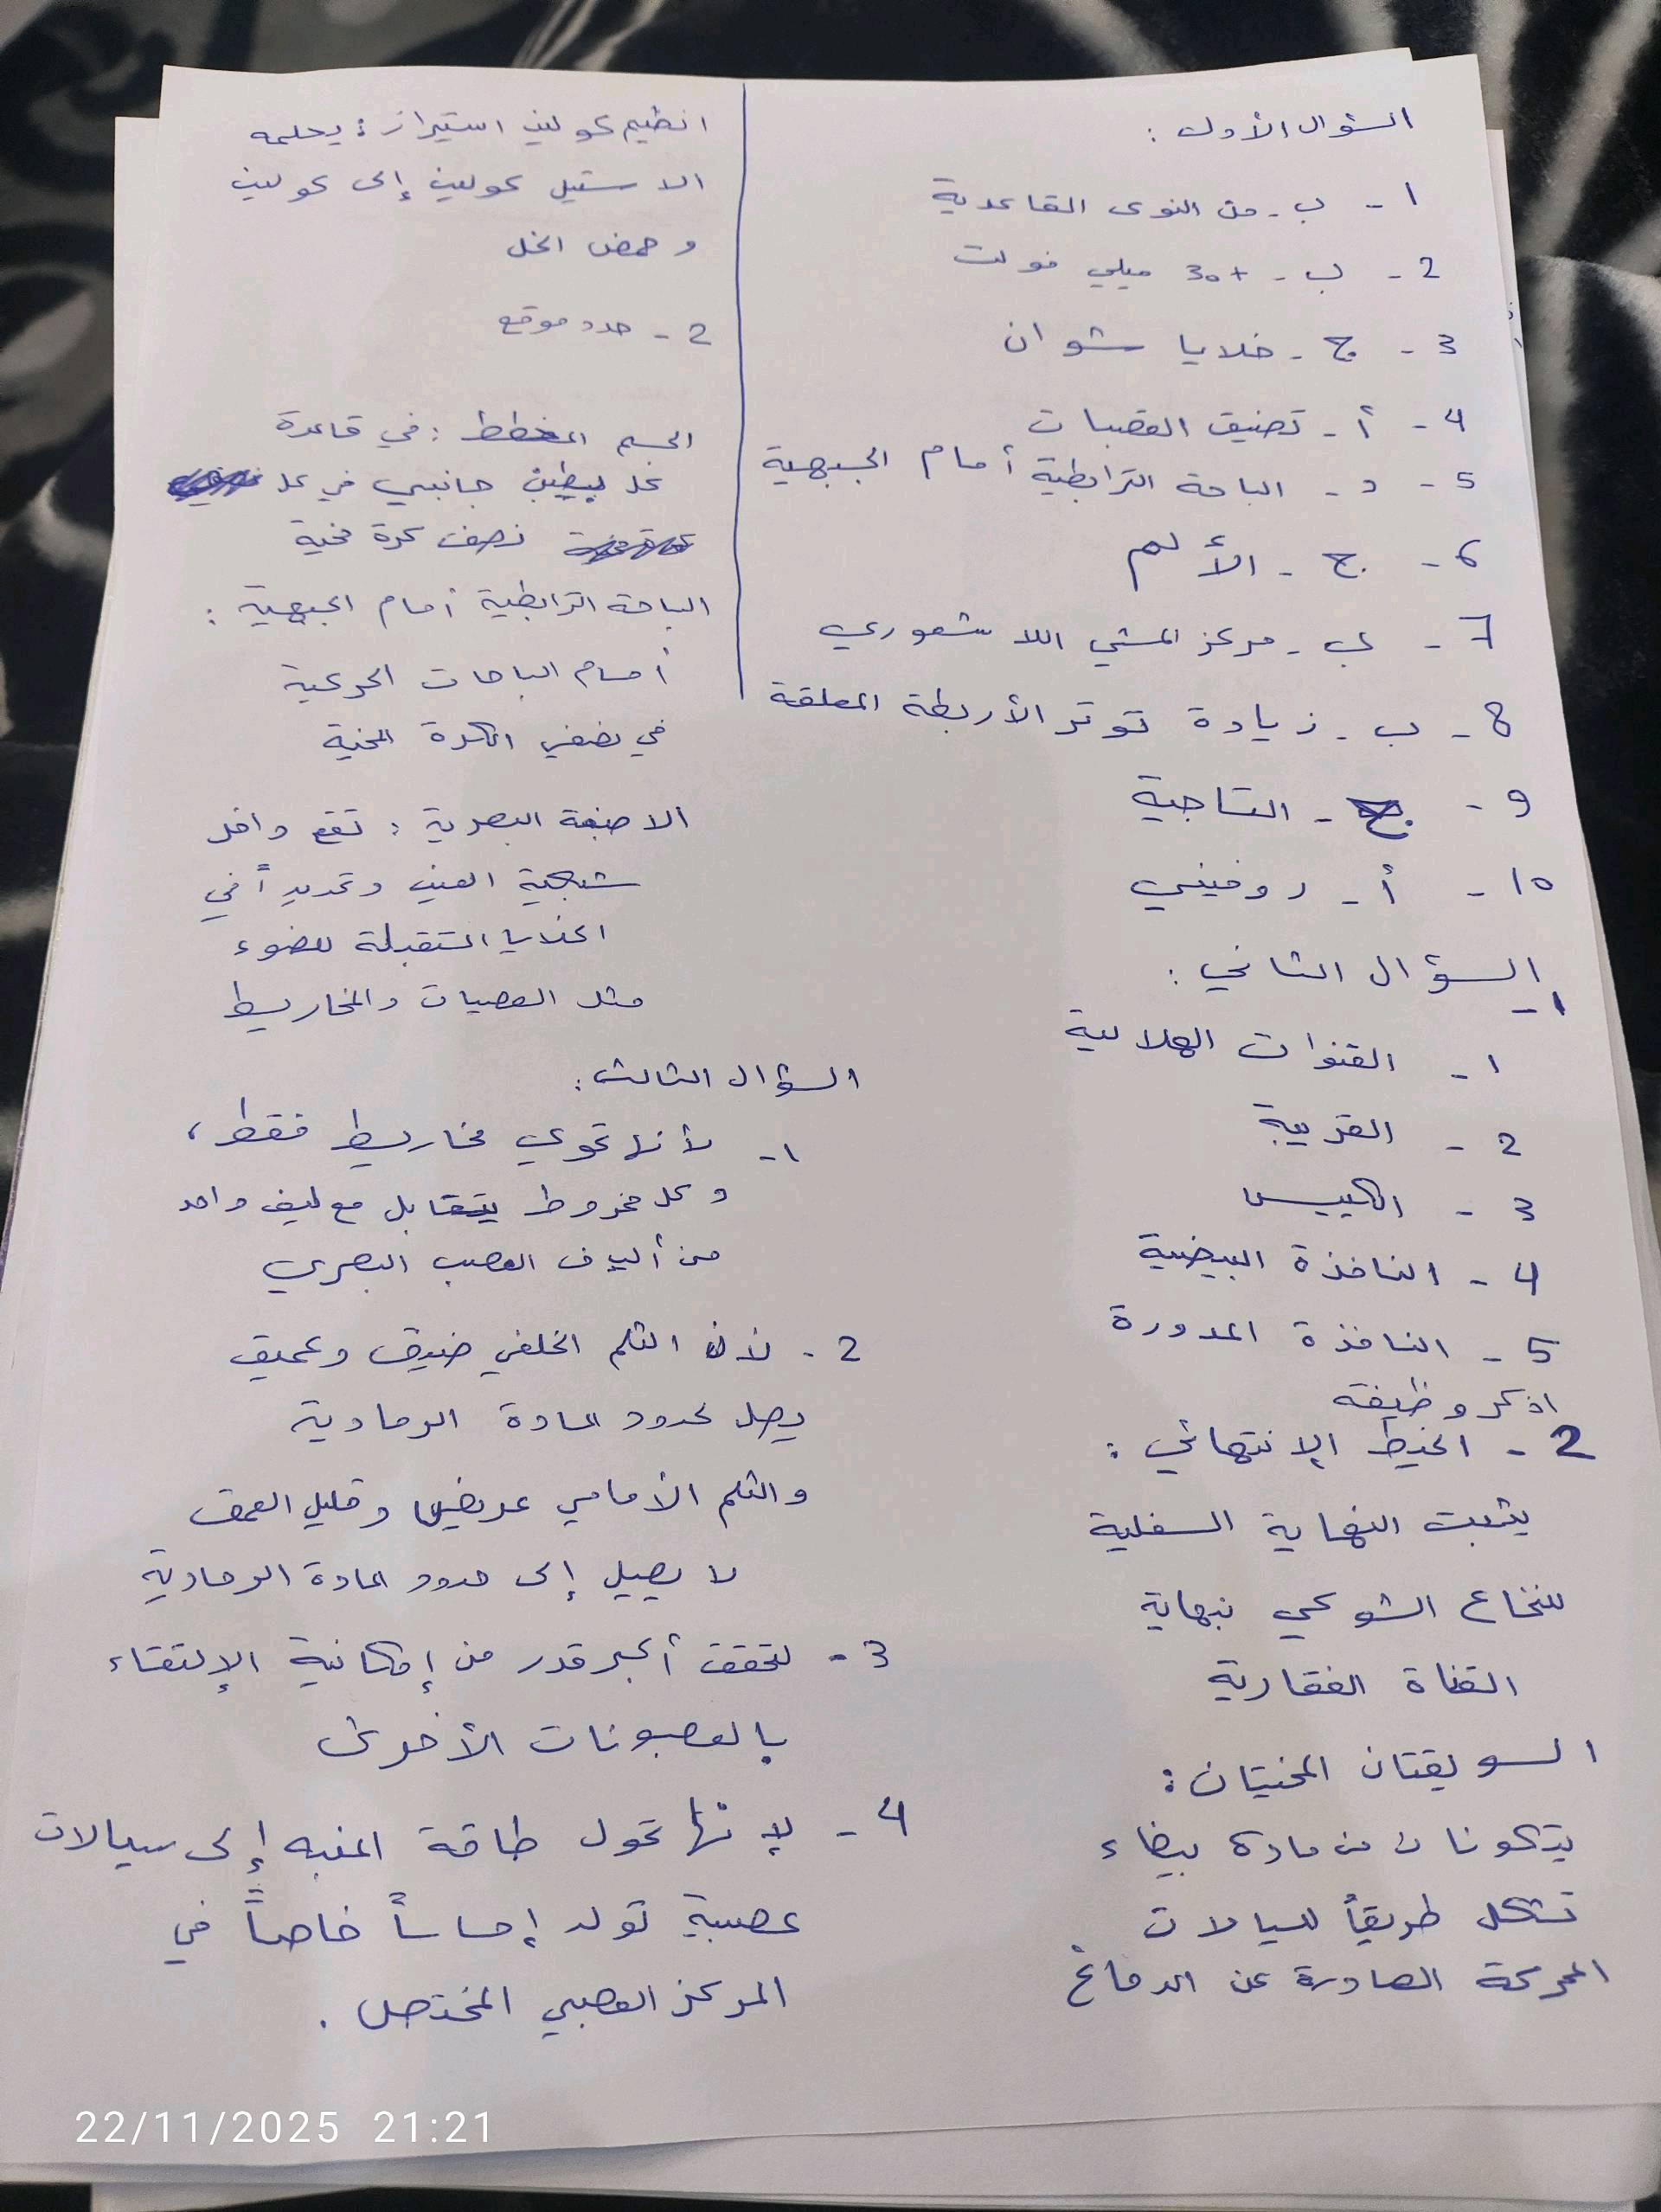 السؤال الأول :
1 - ب - من النوى القاعدية
2 - ب - +30 ميلي فولت
3 - ج - خلايا شوان
4 - أ - تضيق القصبات
5 - د - الباحة الترابطية أمام الجبهية
6 - ج - الألم
7 - ب - مركز المشي اللا شعوري
8 - ب - زيادة توتر الأربطة المعلقة
9 - ج - التاجية
10 - أ - روفيني
السؤال الثاني :
1 -
1 - القنوات الهلالية
2 - القريبة
3 - الكييس
4 - النافذة البيضية
5 - النافذة المدورة
اذكر وظيفة
2 - الخيط الإنتهائي :
يثبت النهاية السفلية
للنخاع الشوكي نبهاية
القناة الفقارية
السويقتان المخيتان :
يتكونان من مادة بيضاء
تشكل طريقاً للسيالات
المحركة الصادرة عن الدماغ
انظيم كولين استيراز : يحلمه
الاستيل كولين إلى كولين
و حمض الخل
2 - حدد موقع
الجسم المخطط : في قاعدة
كل بطين جانبي في كل
نصف كرة مخية
الباحة الترابطية أمام الجبهية :
أمام الباحات الحركية
في نصفي الكرة المخية
الاصبغة البصرية : تقع داخل
شبكية العين وتحديداً في
الخلايا المستقبلة للضوء
مثل العصيات والمخاريط
السؤال الثالث :
1 - لأنها تحوي مخاريط فقط ،
و كل مخروط يتقابل مع ليف واحد
من ألياف العصب البصري
2 - لأن الثلم الخلفي ضيق وعميق
يصل لحدود المادة الرمادية
والثلم الأمامي عريض وقليل العمق
لا يصيل إلى حدود المادة الرمادية
3 - لتحقق أكبر قدر من إمكانية الإلتقاء
بالعصبونات الأخرى
4 - لإنها تحول طاقة المنبه إلى سيالات
عصبية تولد إحساساً خاصاً في
المركز العصبي المختص .
22/11/2025 21:21